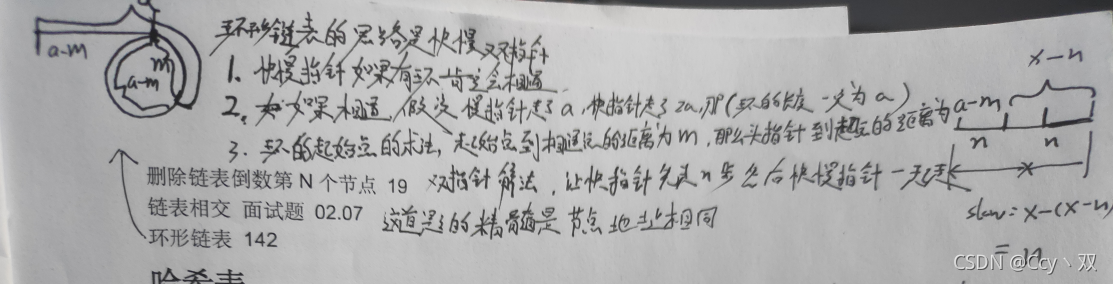 环形链表的思路是快慢双指针
1、快慢指针如果有环一定会相遇
2、如果相遇,假设慢指针走了a,快指针走了2a,那(环的长度一定为a)
3、环的起始点的求法,起始点到相遇点的距离为m,那么头指针到起点的距离为a-m
a-m
m
a-m
x-n
n
n
x
删除链表倒数第 N 个节点 19 双指针解法,让快指针先走n步然后快慢指针一起走
slow=x-(x-n)
=n
链表相交 面试题 02.07 这道题的精髓是节点地址相同
环形链表 142
哈希表
CSDN @Ccy丶双